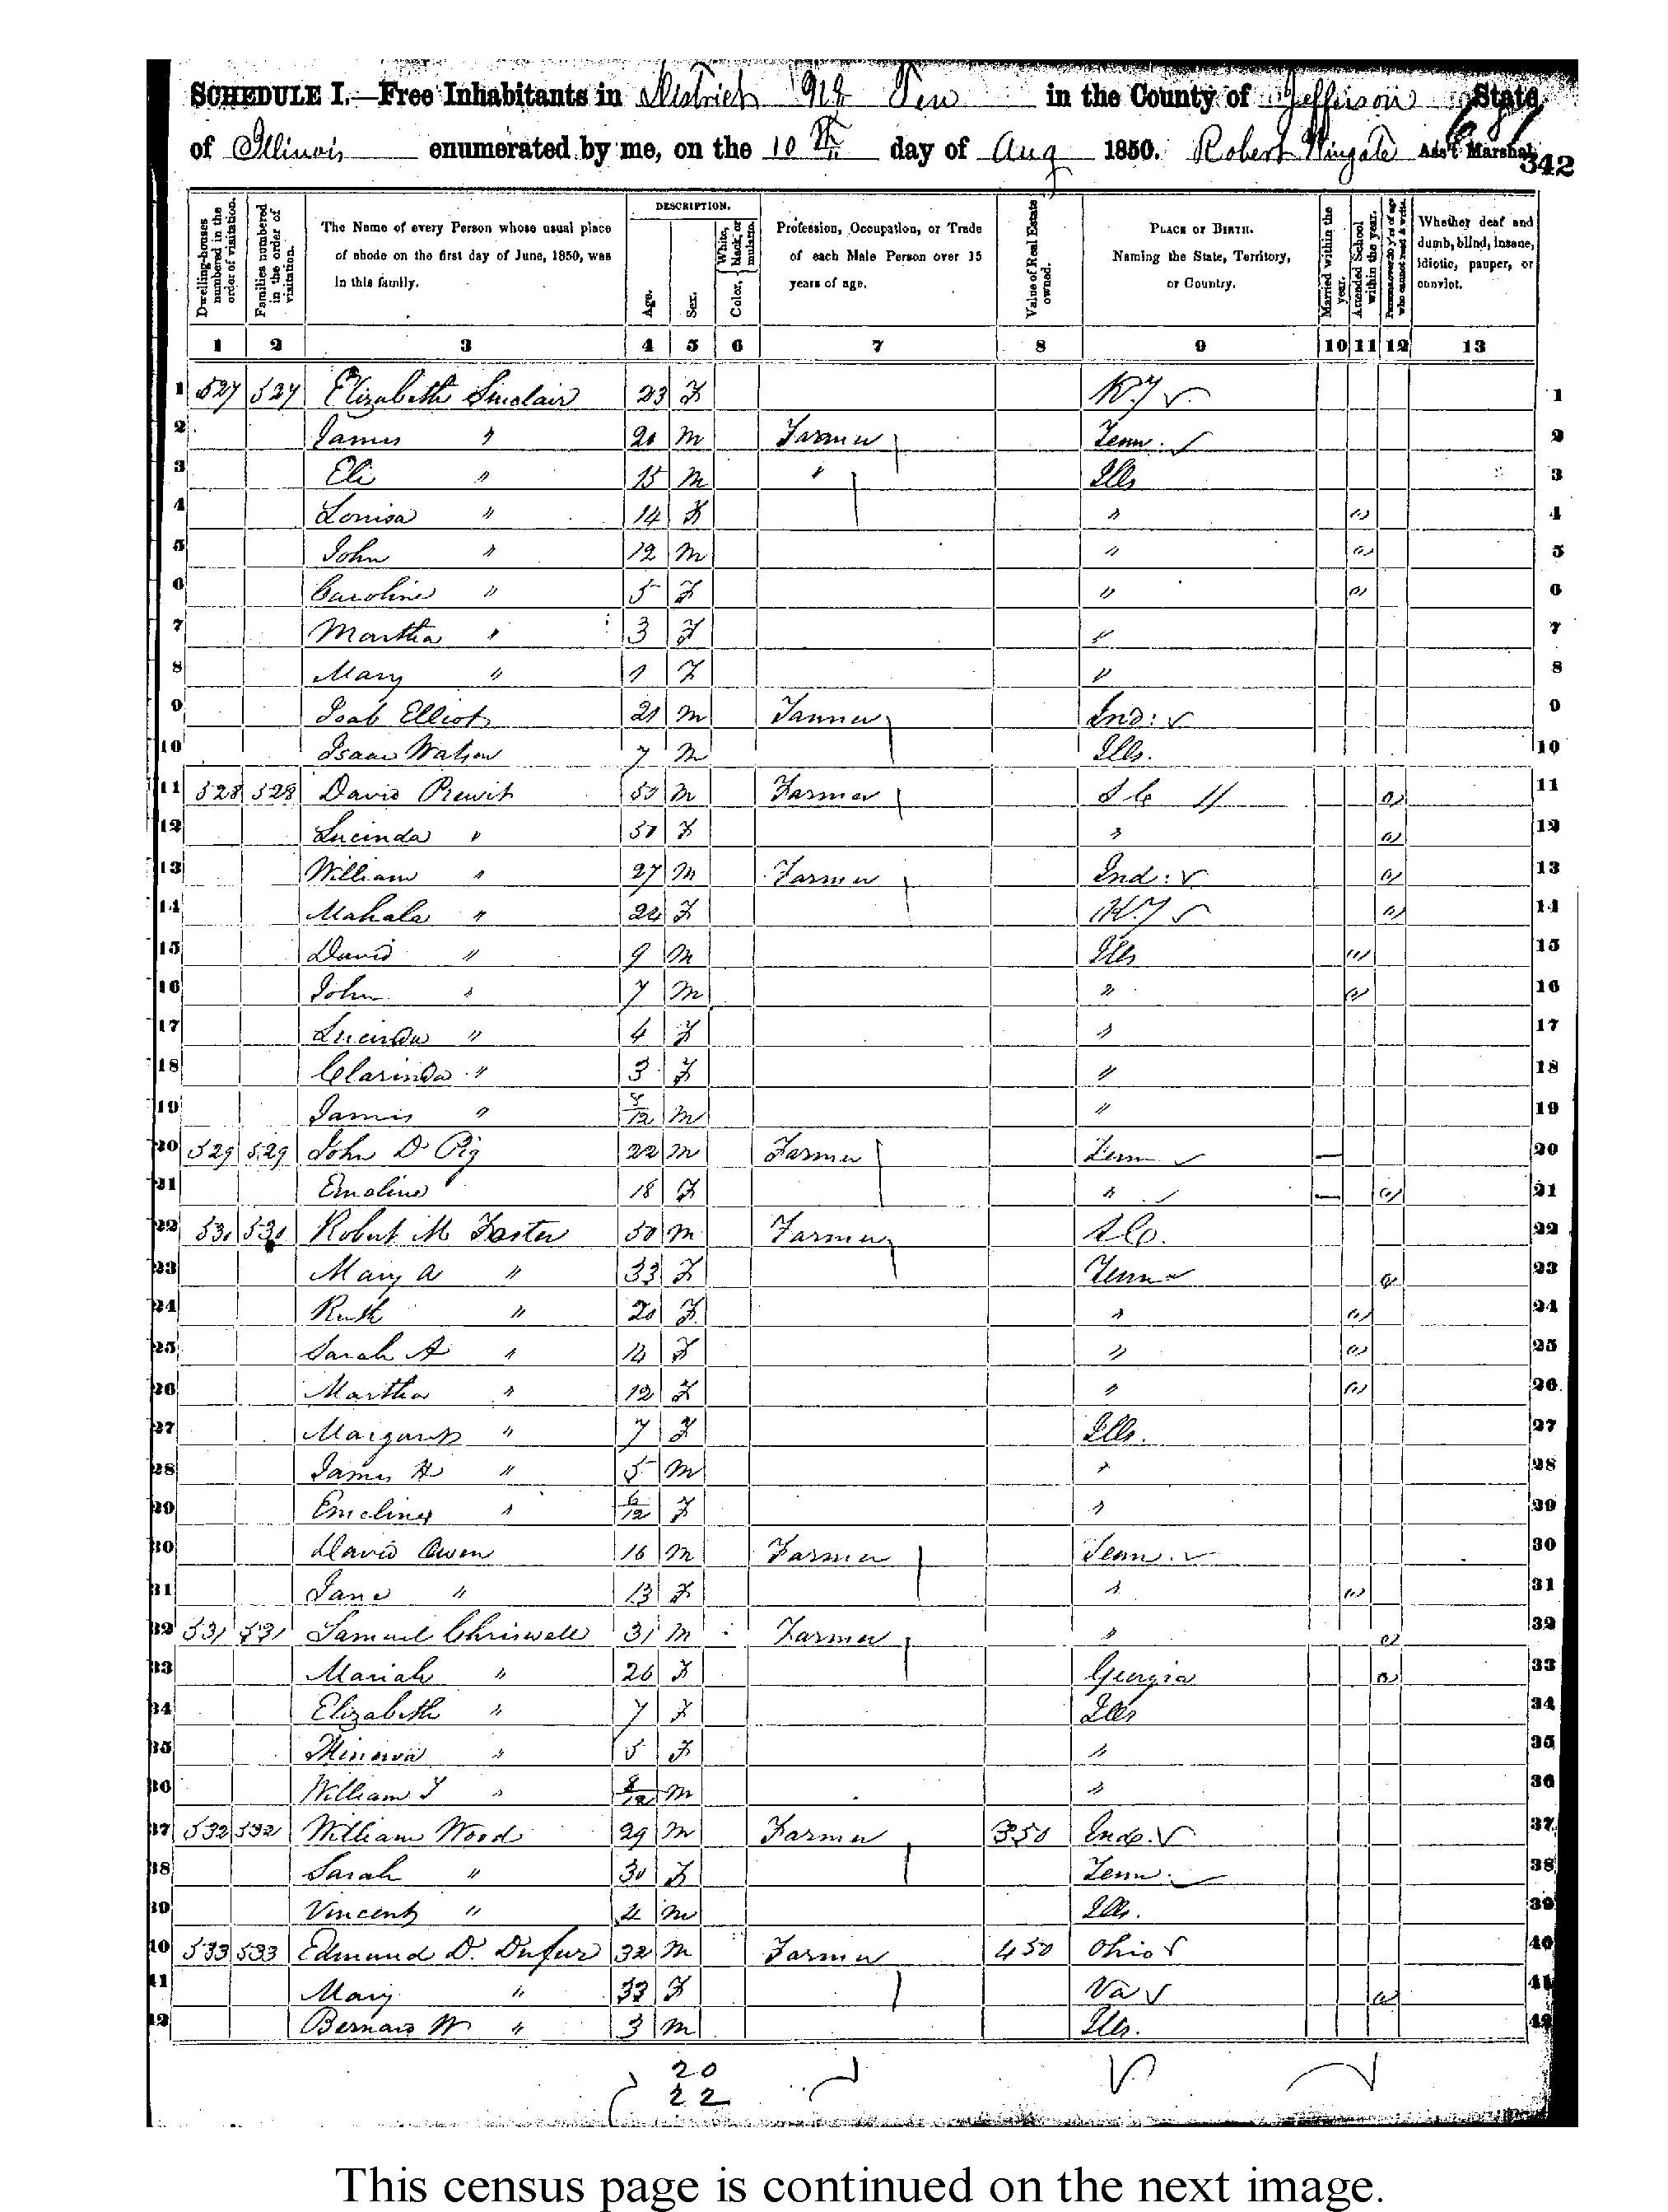 SCHEDULE I.—Free Inhabitants in District No Ten in the County of Jefferson State
681
of Illinois enumerated by me, on the 10th day of Aug 1850. Robert Wingate Ass't Marshal.
342
DESCRIPTION.
Dwelling-houses numbered in the order of visitation.
Families numbered in the order of visitation.
The Name of every Person whose usual place of abode on the first day of June, 1850, was in this family.
Age.
Sex.
Color, White, black, or mulatto.
Profession, Occupation, or Trade of each Male Person over 15 years of age.
Value of Real Estate owned.
PLACE OF BIRTH. Naming the State, Territory, or Country.
Married within the year.
Attended School within the year.
Persons over 20 y'rs of age who cannot read & write.
Whether deaf and dumb, blind, insane, idiotic, pauper, or convict.
1 2 3 4 5 6 7 8 9 10 11 12 13
1 527 527 Elizabeth Sinclair 23 F KY 1
2 James " 20 M Farmer Tenn. 2
3 Eli " 15 M " Ills 3
4 Louisa " 14 F " 4
5 John " 12 M " 5
6 Caroline " 5 F " 6
7 Martha " 3 F " 7
8 Mary " 1 F " 8
9 Joab Elliot 21 M Tanner Ind: 9
10 Isaac Watson 7 M Ills. 10
11 528 528 David Prewit 50 M Farmer S C 11
12 Lucinda " 50 F " 12
13 William " 27 M Farmer Ind: 13
14 Mahala " 24 F KY 14
15 David " 9 M Ills 15
16 John " 7 M " 16
17 Lucinda " 4 F " 17
18 Clarinda " 3 F " 18
19 James " /12 M " 19
20 529 529 John D Pig 22 M Farmer Tenn 20
21 Emoline 18 F " 21
22 530 530 Robert M Foster 50 M Farmer S Co. 22
23 Mary A " 33 F Tenn 23
24 Ruth " 20 F " 24
25 Sarah A " 14 F " 25
26 Martha " 12 F " 26
27 Margaret " 7 F Ills. 27
28 James H " 5 M " 28
29 Emeline " 6/12 F " 29
30 David Owen 16 M Farmer Tenn. 30
31 Jane " 13 F " 31
32 531 531 Samuel Chriswell 31 M Farmer " 32
33 Mariah " 26 F Georgia 33
34 Elizabeth " 7 F Ills 34
35 Minerva " 5 F " 35
36 William T " 8/12 M " 36
37 532 532 William Wood 29 M Farmer 350 Inda. 37
38 Sarah " 30 F Tenn. 38
39 Vincent " 4 M Ills. 39
40 533 533 Edmund D. Dufur 32 M Farmer 450 Ohio 40
41 Mary " 33 F Va 41
42 Bernard W " 3 M Ills. 42
20
22
This census page is continued on the next image.